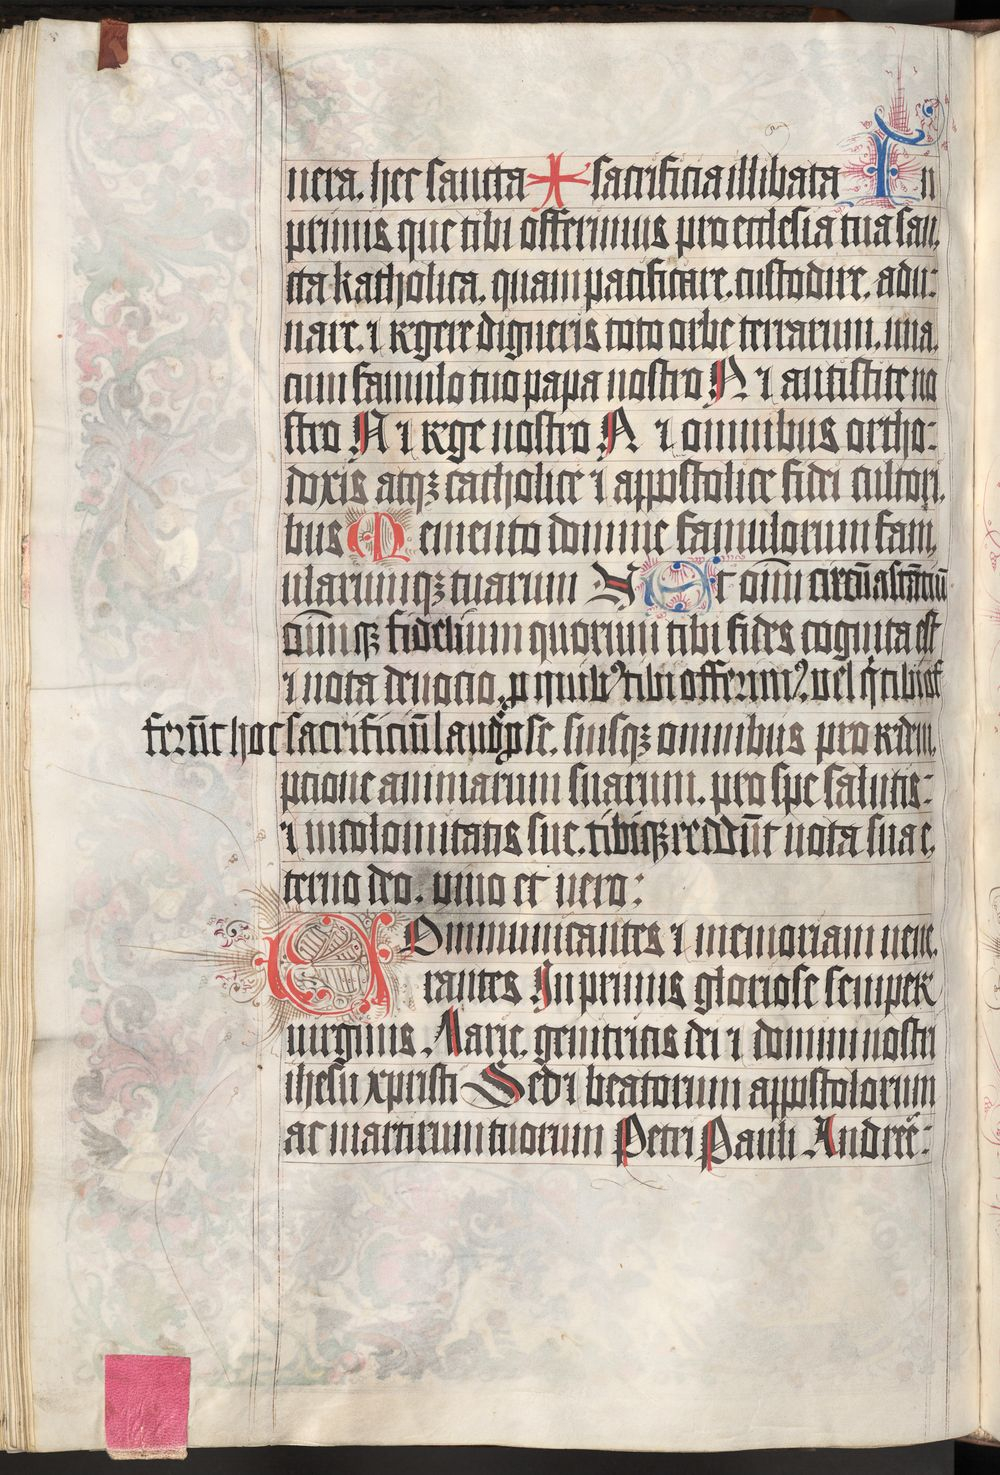 nera. hec sancta ✠ sacrificia illibata In
primis que tibi offerimus pro ecclesia tua san,
cta katholica, quam pacificare, custodire, adu:
nare, ⁊ regere digneris toto orbe terrarum, una,
cum famulo tuo papa nostro N ⁊ antistite no
stro N ⁊ rege nostro N ⁊ omnibus ortho:
doxis atqꝫ catholice ⁊ appostolice fidei cultori,
bus Memento domine famulorum fam,
ularumqꝫ tuarum N Et oīm circūastātiū
oīmqꝫ fidelium quorum tibi fides cognita est
⁊ nota deuocio, ꝓ quibꝰ tibi offerimꝰ, vel q̄ tibi of
ferūt hoc sacrificiū laudis ꝓ se, suisqꝫ omnibus pro redem,
ptione animarum suarum, pro spe salutis:
⁊ incolomitatis sue, tibiqꝫ reddūt uota sua e,
terno deo, uiuo et uero:
Communicantes ⁊ memoriam uene,
rantes In primis gloriose semper
uirginis, Marie, genitricis dei ⁊ domini nostri
ihesu xpristi Sed ⁊ beatorum appostolorum
ac martirum tuorum Petri Pauli Andree: